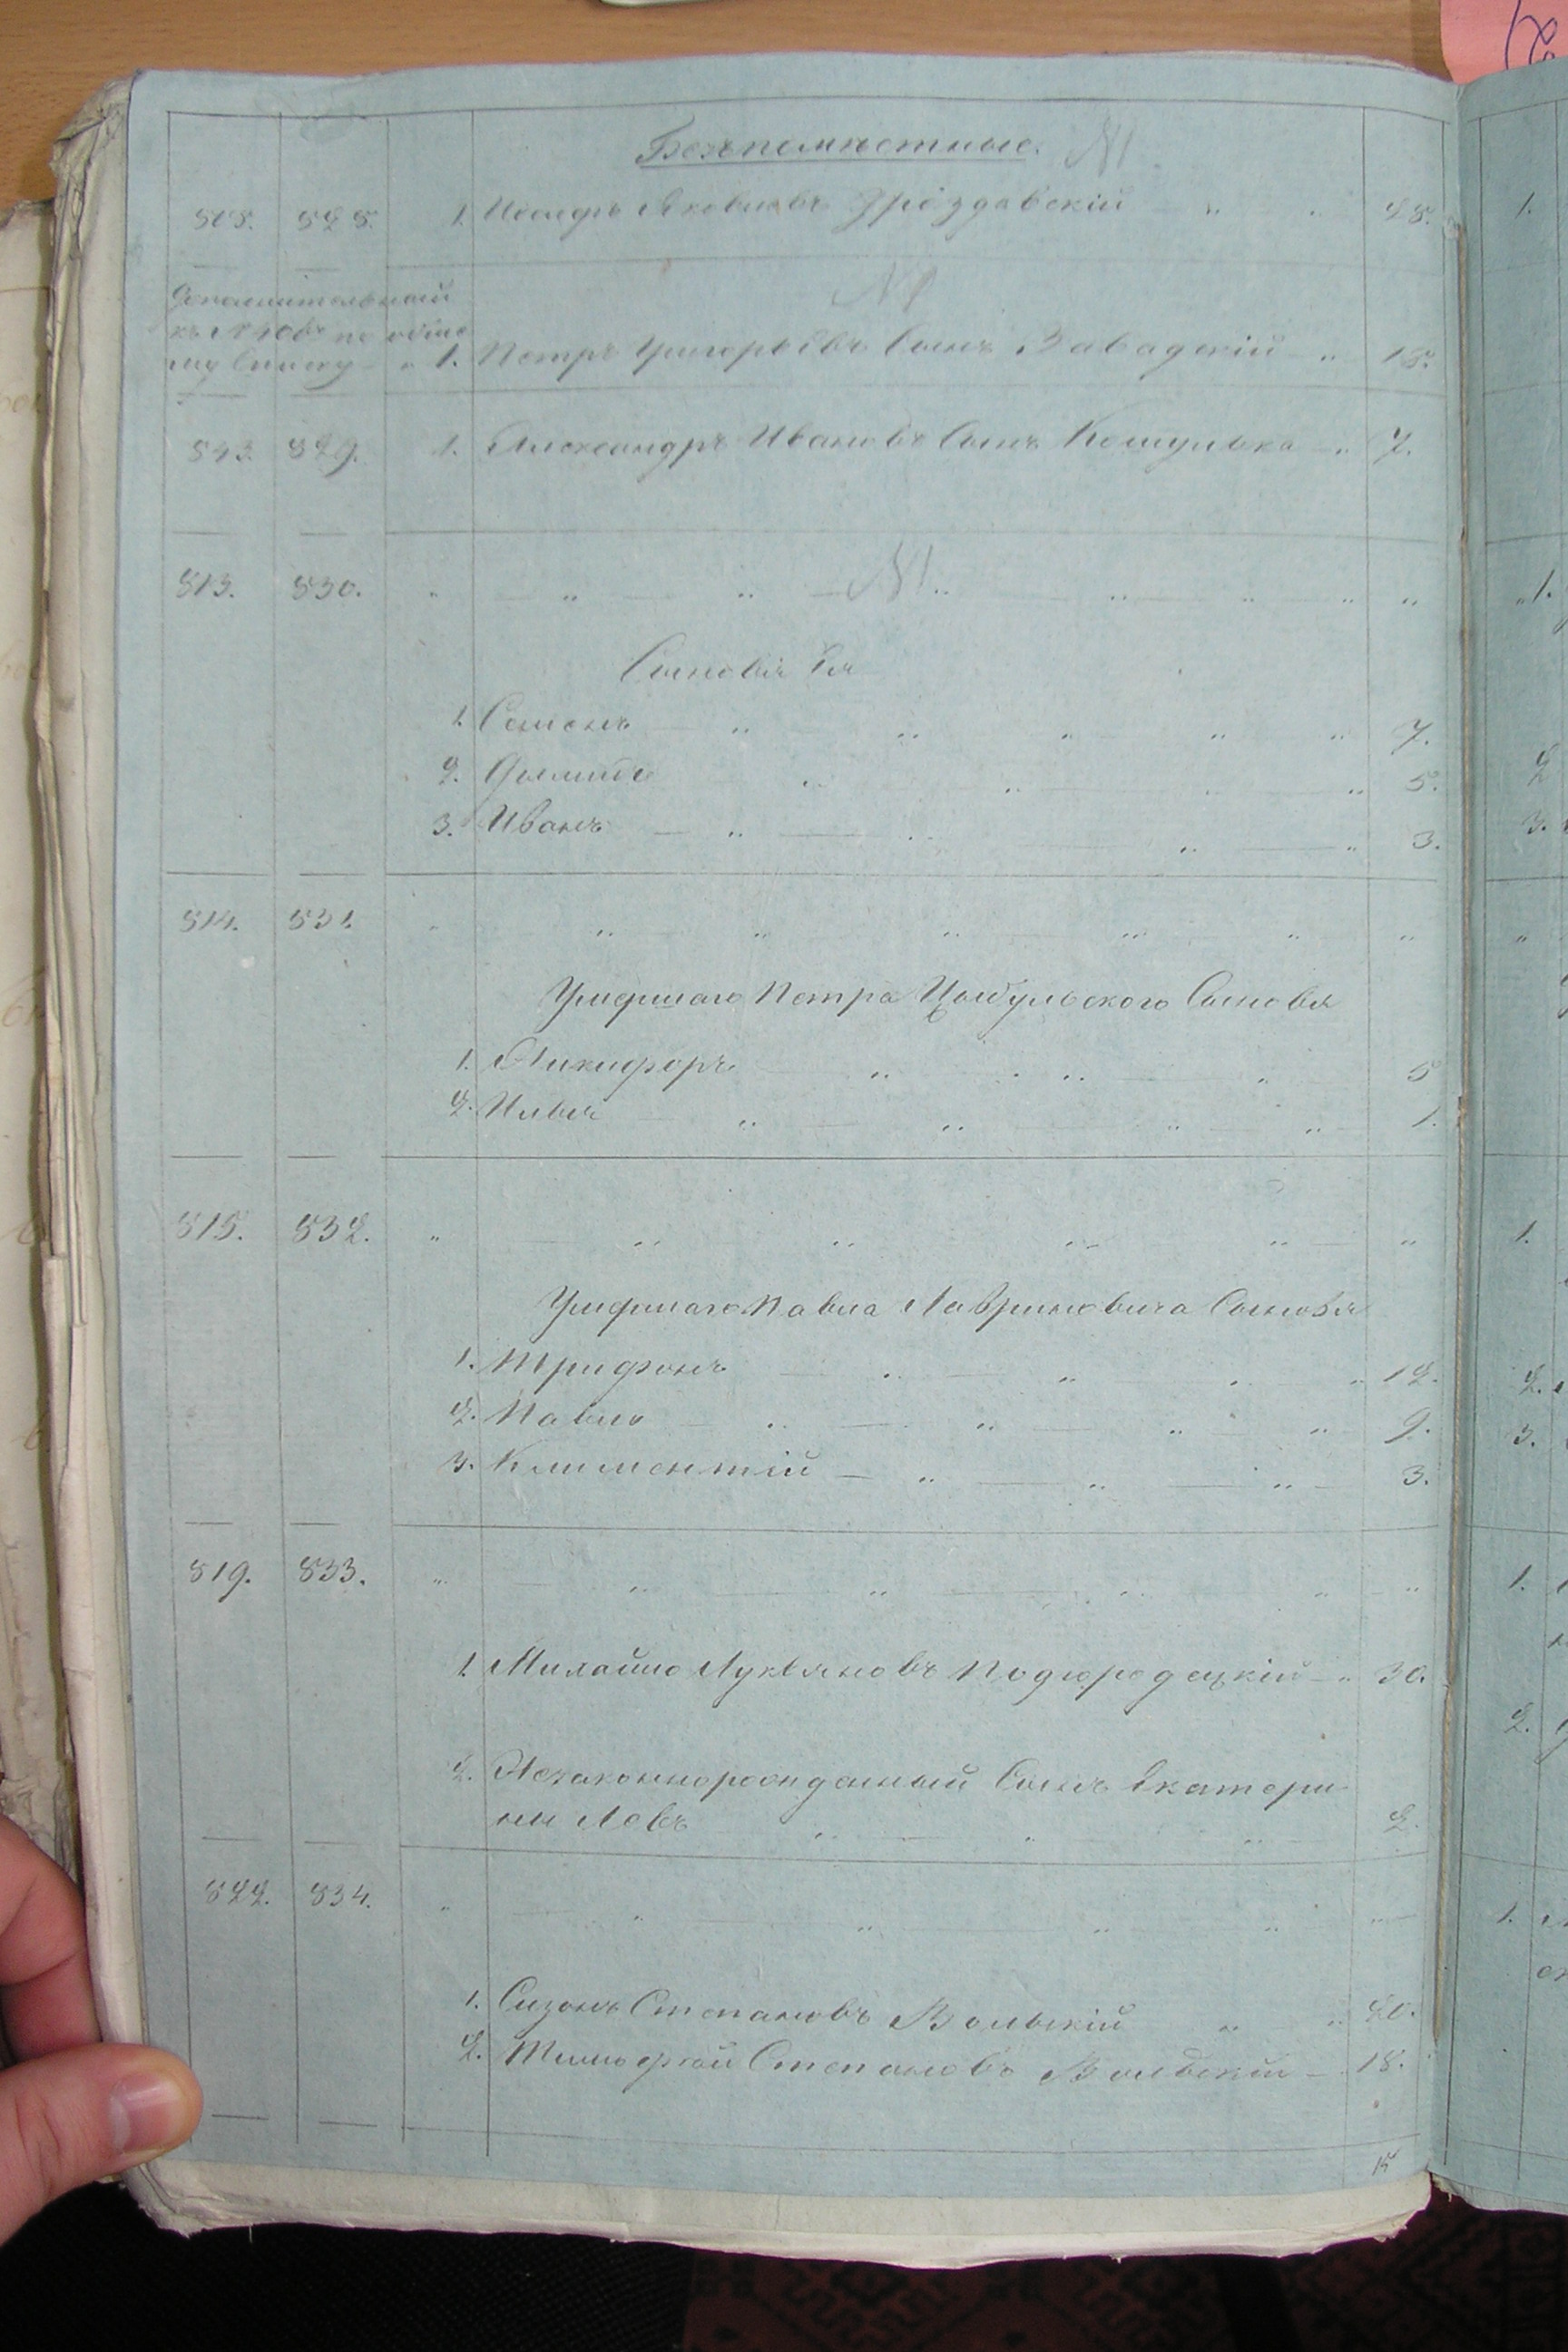 Безпомѣстные. № 1
1. Іосифъ Яковлевъ Дроздовскій " 28.
Дополнительный
къ № 406 му по обще
му списку " 1. Петръ Григорьевъ Сынъ Завадскій " 18.
№
543. 529. 1. Александръ Ивановъ Сынъ Кошулька " 7.
513. 530. " " " № " " " " "
Сыновья Ея
1. Семенъ " " " " " 7.
2. Данило " " " " 5.
3. Иванъ " " " " 3.
514. 531. " " " " " " "
Умершаго Петра Цыбульского Сыновья
1. Никифоръ " " " 5
2. Илья " " " " 1.
515. 532. " " " " " "
Умершаго Павла Лавриновича Сыновья
1. Трифонъ " " " " 12.
2. Павло " " " " 9.
3. Климентій " " " 3.
519. 533. " " " " " "
1. Михайло Лукьяновъ Подгородецкій " 30.
2. Незаконнорожденный Сынъ Екатери
ны Левъ " " " 2.
522. 534. " " " " " "
1. Сизонъ Степановъ Вольскій " " 20.
2. Тимофей Степановъ Вольскій 18.
1.
"1.
2
3.
"
1.
2.
3.
1.
2.
1.